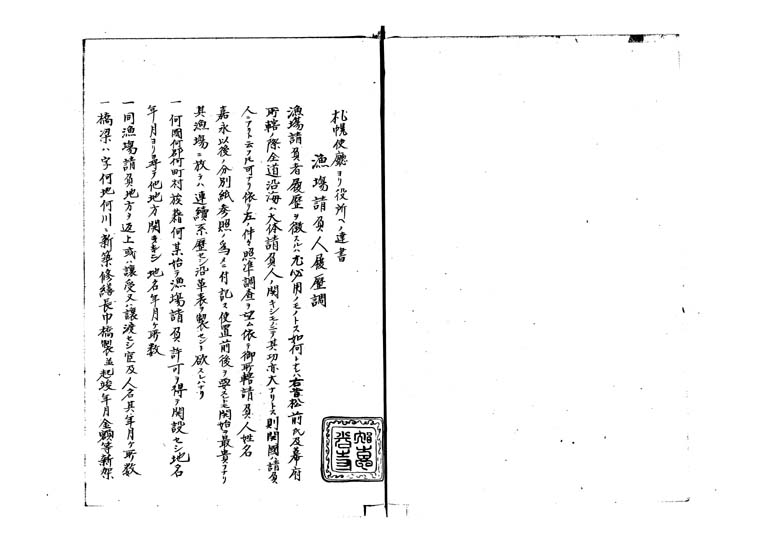 札幌使廳ヨリ役所ヘノ達書
漁場請負人履歴調
漁場請負者履歴ヲ徴スルハ尤必用ノモノトス如何トナレハ右昔松前氏及幕府
所轄ノ際全道沿海ハ大体請負人ノ開キシモノニテ其功亦大ナリトス則開國ハ請負
人ニアリト云フルモ可ナリ依テ左ノ件々照準調査ヲ望ム依テ御所轄請負人姓名
嘉永以後ノ分別紙参照ノ為メニ付記ス使置前後ヲ要スト モ開始ヲ最貴フナリ
其漁場ニ放テハ連續系歴セシ沿革表ヲ製セント欲スレハナリ
一何國何郡何町村族籍何某始テ漁場請負許可ヲ得テ開設セシ地名
年月ヨリ尋テ他地方開キシ地名年月ヶ所数
一同漁場請負地方ヲ返上或ハ譲受又ハ譲渡セシ官及人名其年月ヶ所数
一橋梁ハ字何地何川ニ新築修繕長巾橋製並起竣年月金額等新架